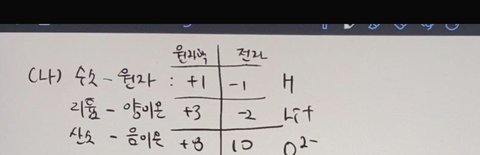 원자핵 전자
(나) 수소 - 원자 : +1 -1 H
리튬 - 양이온 +3 -2 Li+
산소 - 음이온 +8 10 O2-